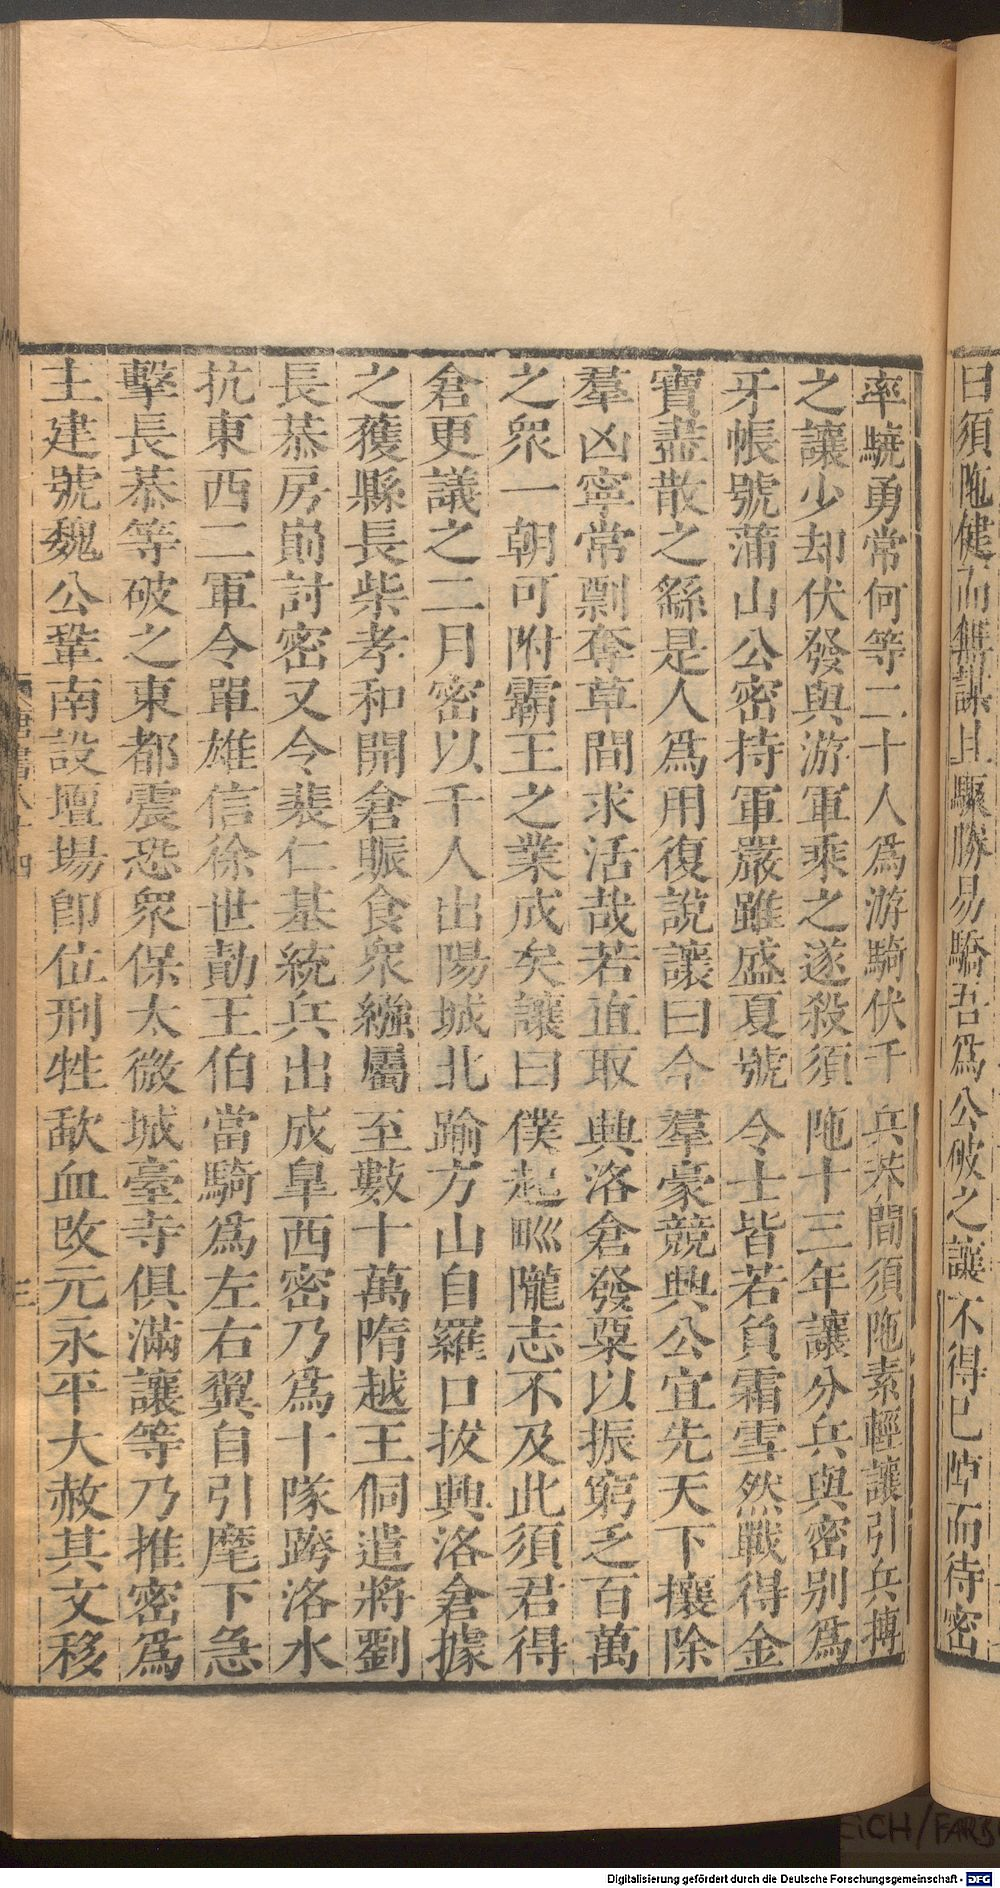 曰須陁健而無謀且驟勝易驕吾爲公破之讓不得已陣而待密
率驍勇常何等二十人爲游騎伏千兵莽間須陁素輕讓引兵搏
之讓少却伏發與游軍乘之遂殺須陁十三年讓分兵與密别爲
牙帳號蒲山公密持軍嚴雖盛夏號令士皆若負霜雪然戰得金
寶盡散之繇是人爲用復說讓曰今羣豪競興公宜先天下攘除
羣凶寧常剽奪草間求活哉若直取興洛倉發粟以振窮乏百萬
之衆一朝可附霸王之業成矣讓曰僕起畎隴志不及此須君得
倉更議之二月密以千人出陽城北踰方山自羅口拔興洛倉據
之獲縣長柴孝和開倉賑食衆繈屬至數十萬隋越王侗遣將劉
長恭房崱討密又令裴仁基統兵出成皐西密乃爲十隊跨洛水
抗東西二軍令單雄信徐世勣王伯當騎爲左右翼自引麾下急
擊長恭等破之東都震恐衆保太微城臺寺俱滿讓等乃推密爲
主建號魏公鞏南設壇場卽位刑牲歃血改元永平大赦其文移
唐書八十四
三
EiCH/FARB
Digitalisierung gefördert durch die Deutsche Forschungsgemeinschaft - DFG